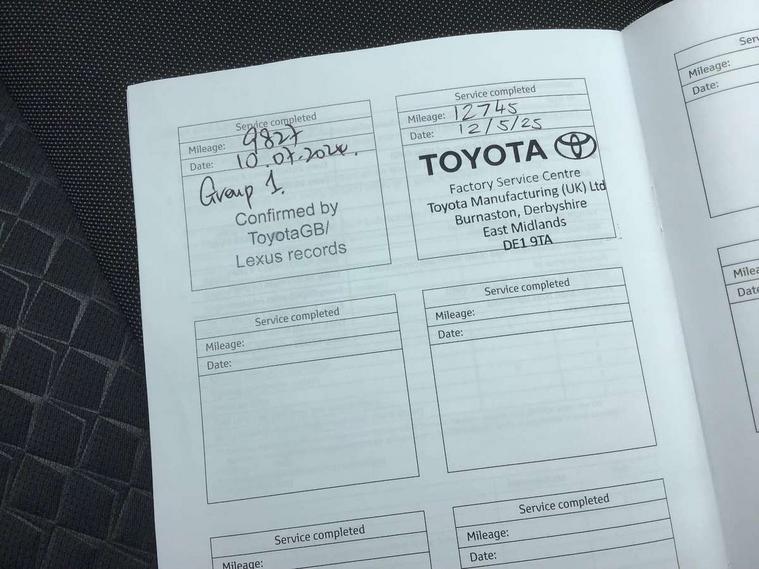 Service completed
Mileage: 9827
Date: 10.07.2024.
Group 1.
Confirmed by
ToyotaGB/
Lexus records
Service completed
Mileage: 12745
Date: 12/5/25
TOYOTA
Factory Service Centre
Toyota Manufacturing (UK) Ltd
Burnaston, Derbyshire
East Midlands
DE1 9TA
Service completed
Mileage:
Date:
Service completed
Mileage:
Date:
Service completed
Mileage:
Service completed
Mileage:
Date:
Mileage:
Date: